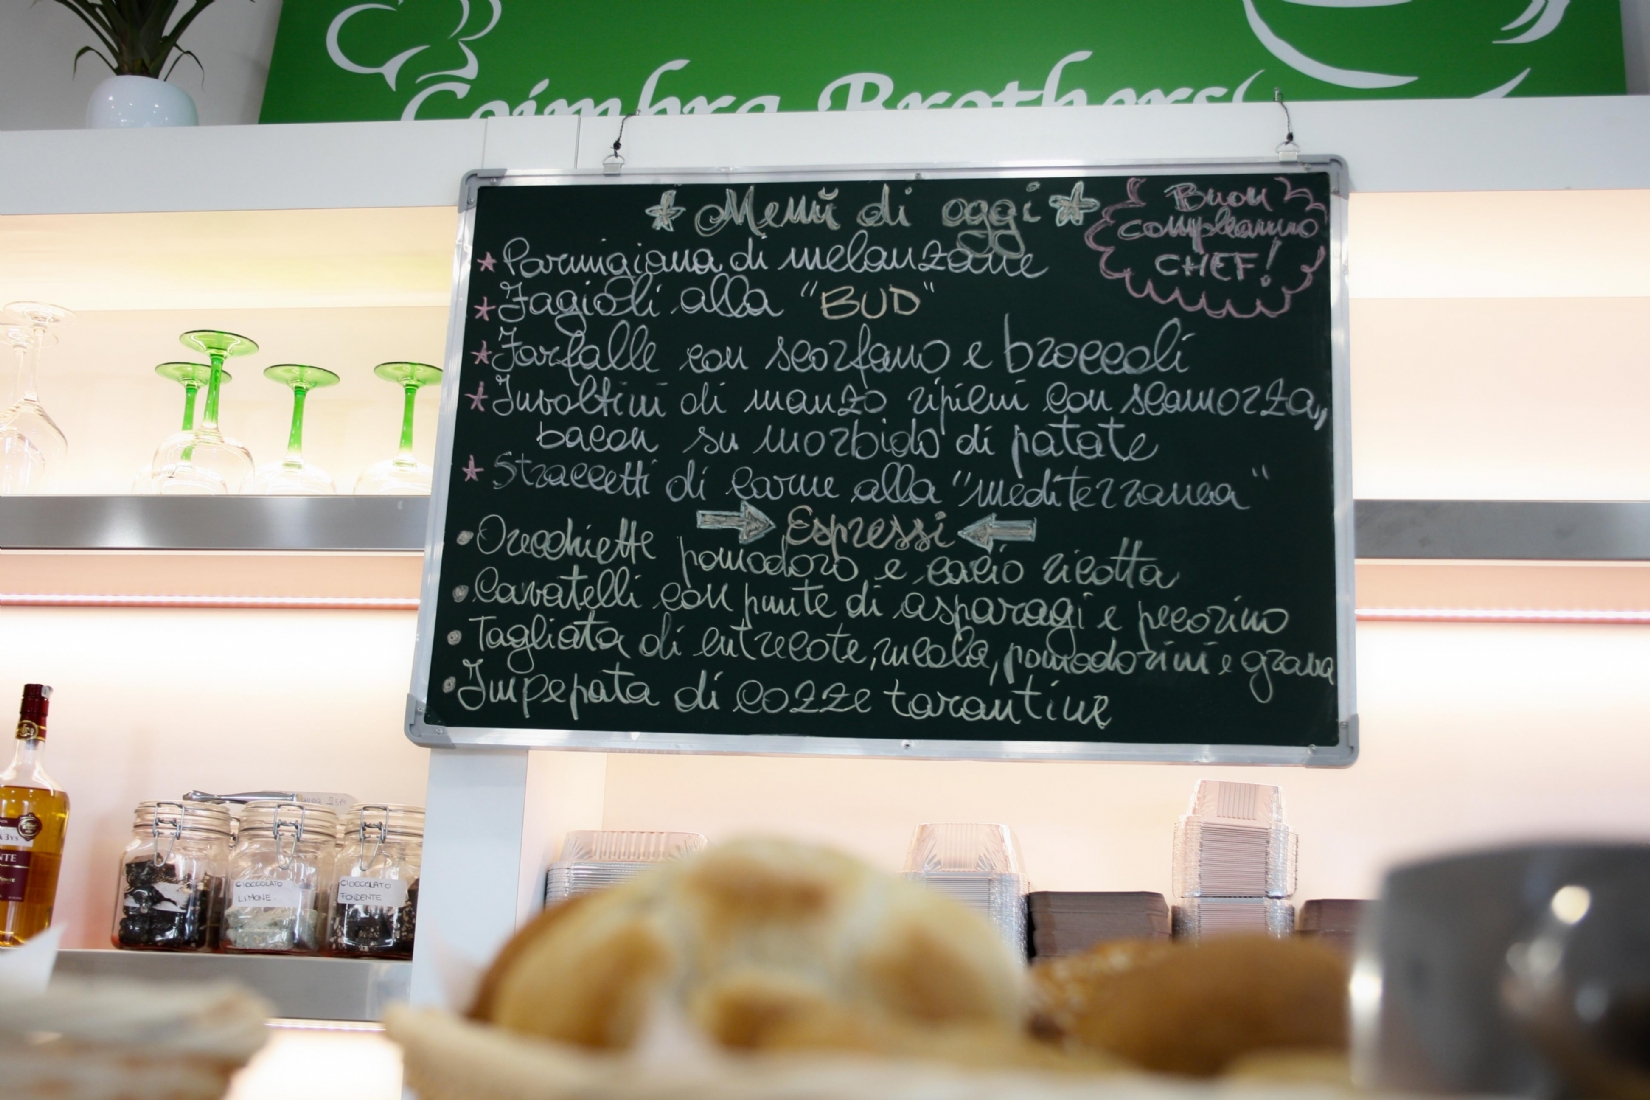 Coimbra Brothers
Menù di oggi
Buon
compleanno
CHEF!
Parmigiana di melanzane
Fagioli alla "BUD"
Farfalle con scorfano e broccoli
Involtini di manzo ripieni con scamorza,
bacon su morbido di patate
Straccetti di carne alla "mediterranea"
Espressi
Orecchiette pomodoro e cacio ricotta
Cavatelli con punte di asparagi e pecorino
Tagliata di entrecote, rucola, pomodorini e grana
Impepata di cozze tarantine
CIOCCOLATO
LIMONE
CIOCCOLATO
FONDENTE